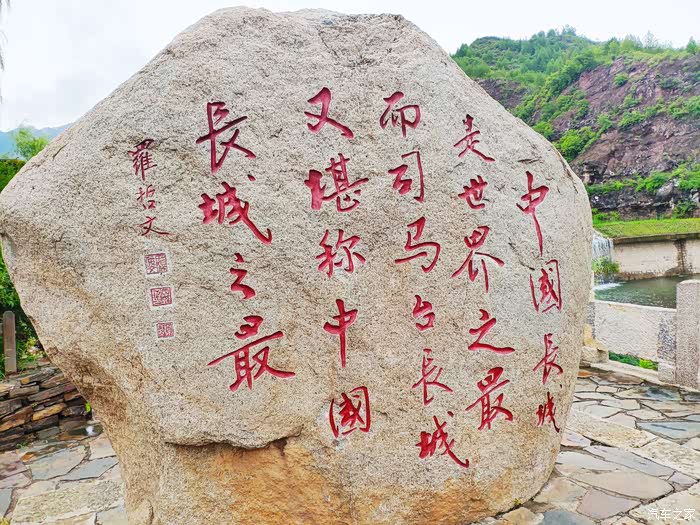 中國長城
是世界之最
而司马台長城
又堪称中國
長城之最
羅哲文
汽车之家